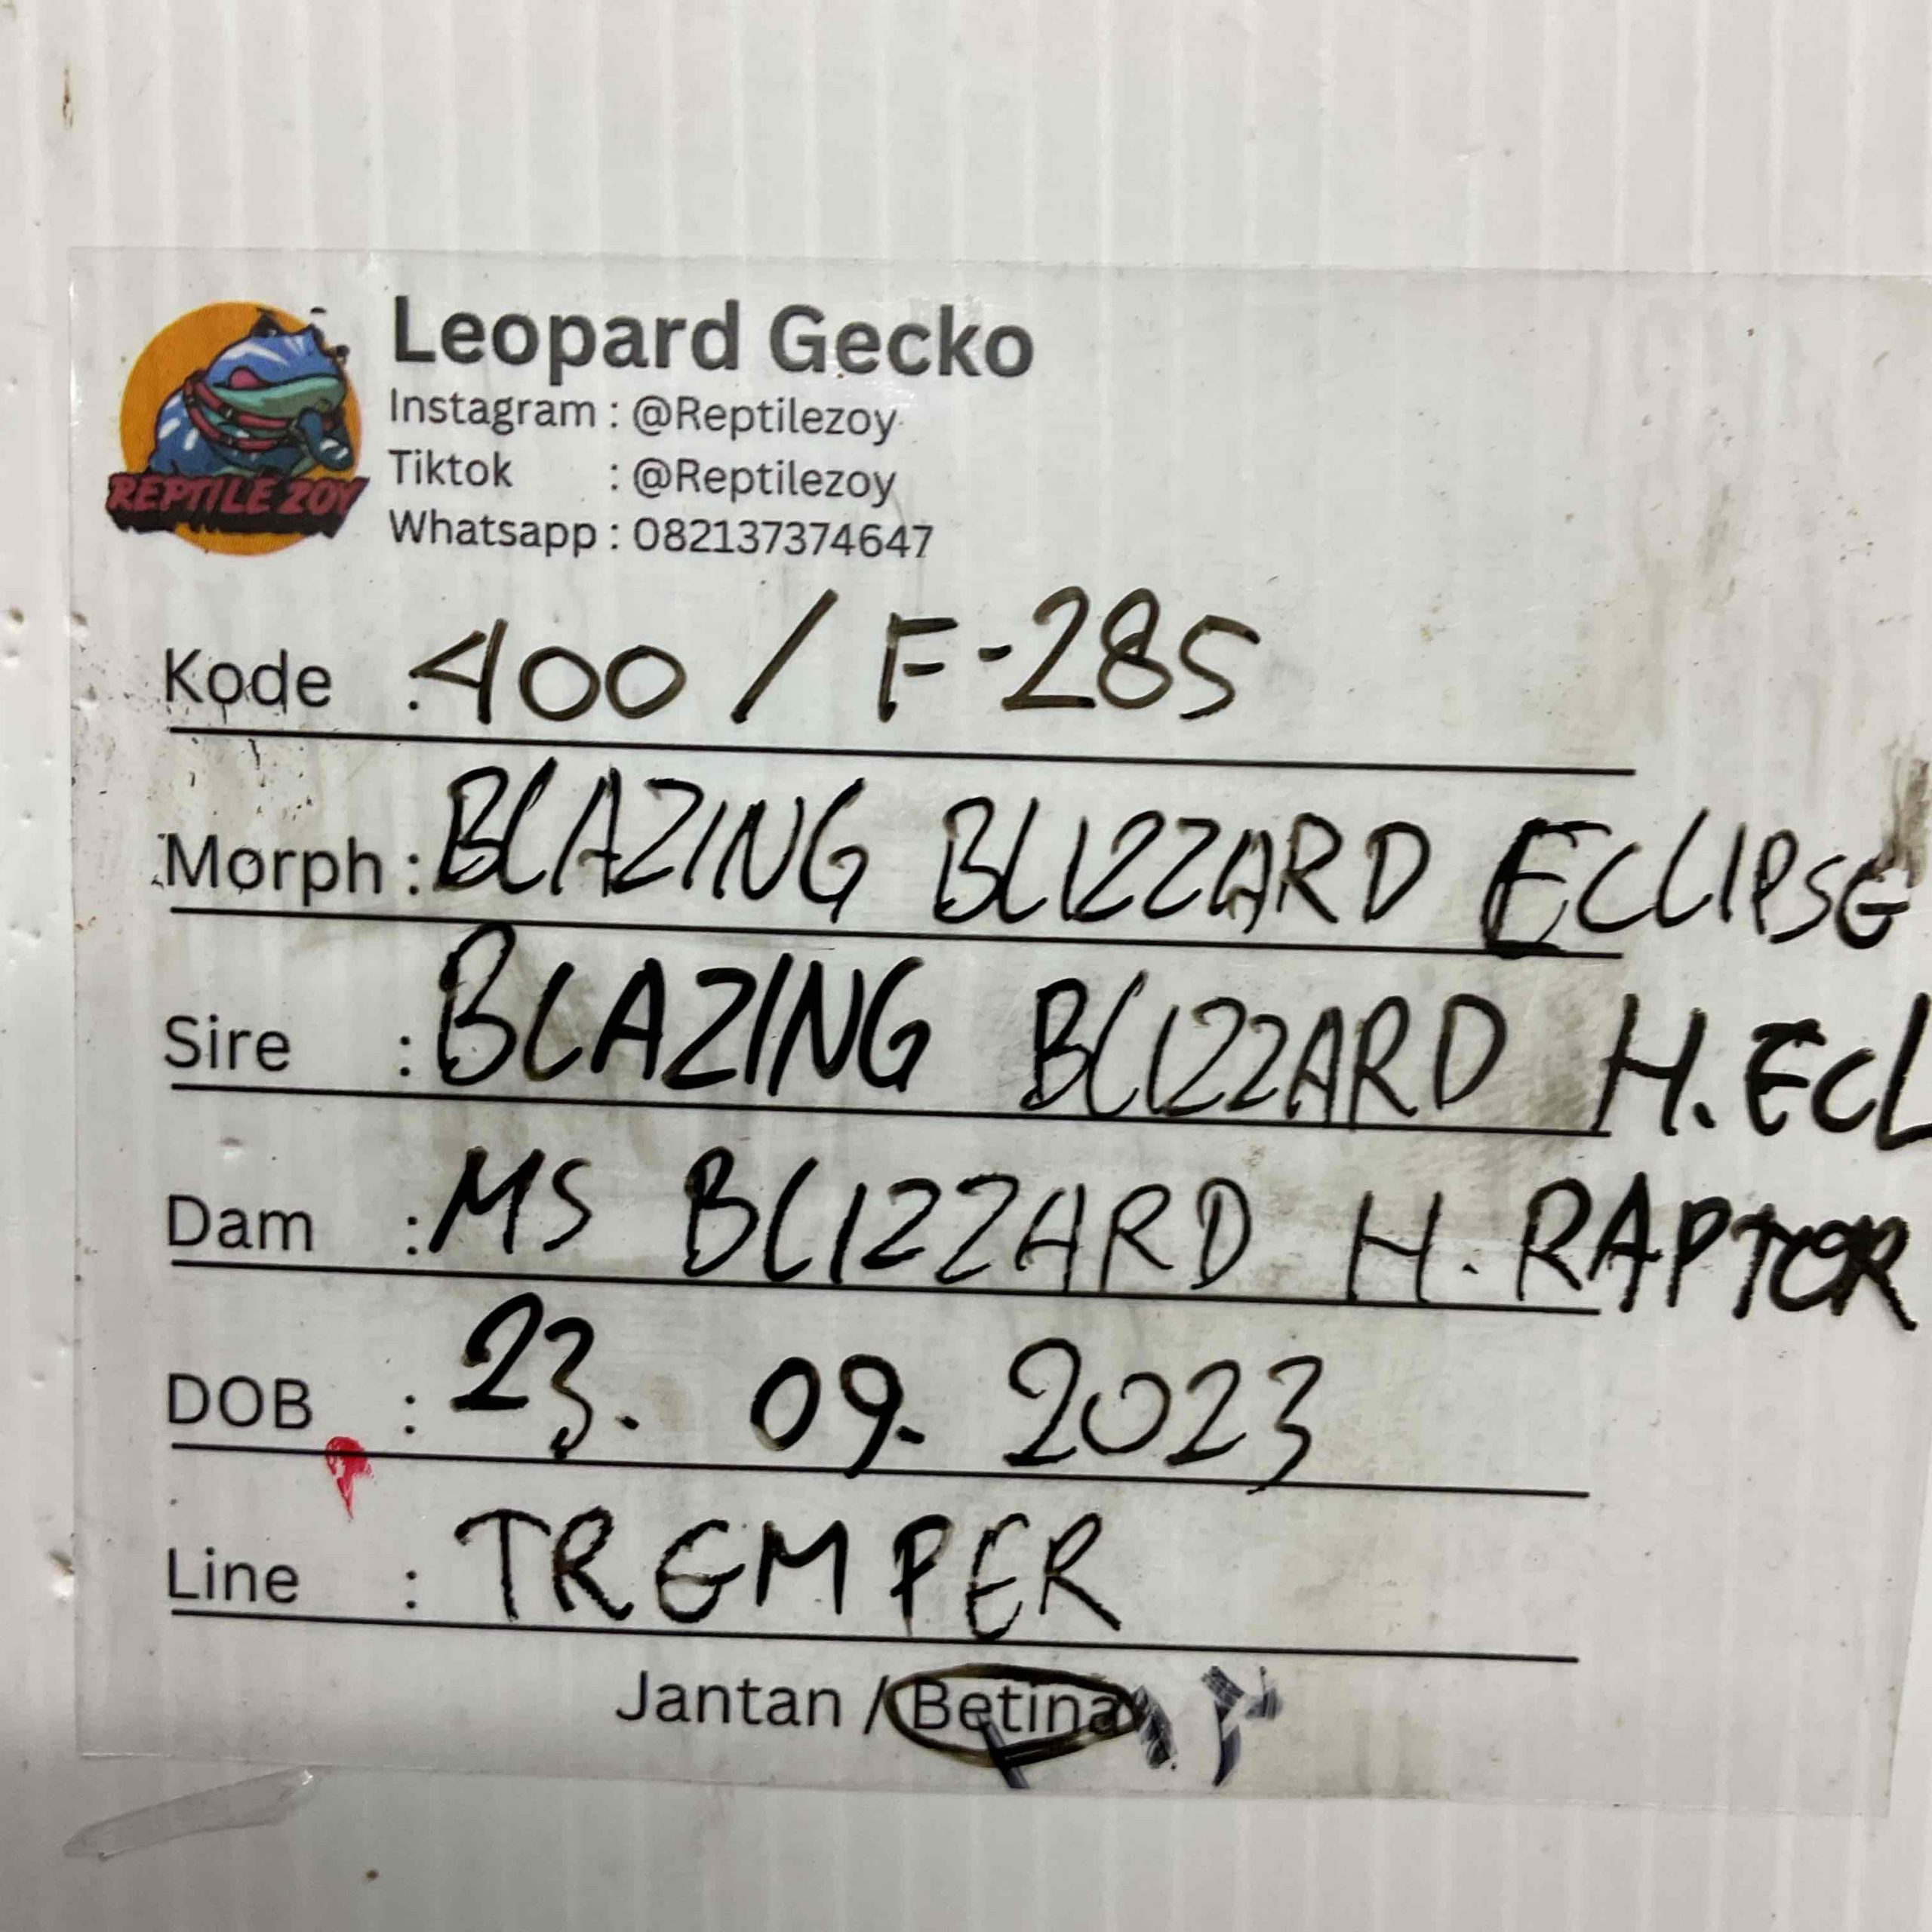 Leopard Gecko
Instagram : @Reptilezoy
Tiktok : @Reptilezoy
Whatsapp : 082137374647
REPTILE ZOY
Kode : 400 / F-285
Morph : BLAZING BLIZZARD ECLIPSE
Sire : BLAZING BLIZZARD H. ECL
Dam : MS BLIZZARD H. RAPTOR
DOB : 23. 09. 2023
Line : TREMPER
Jantan / Betina